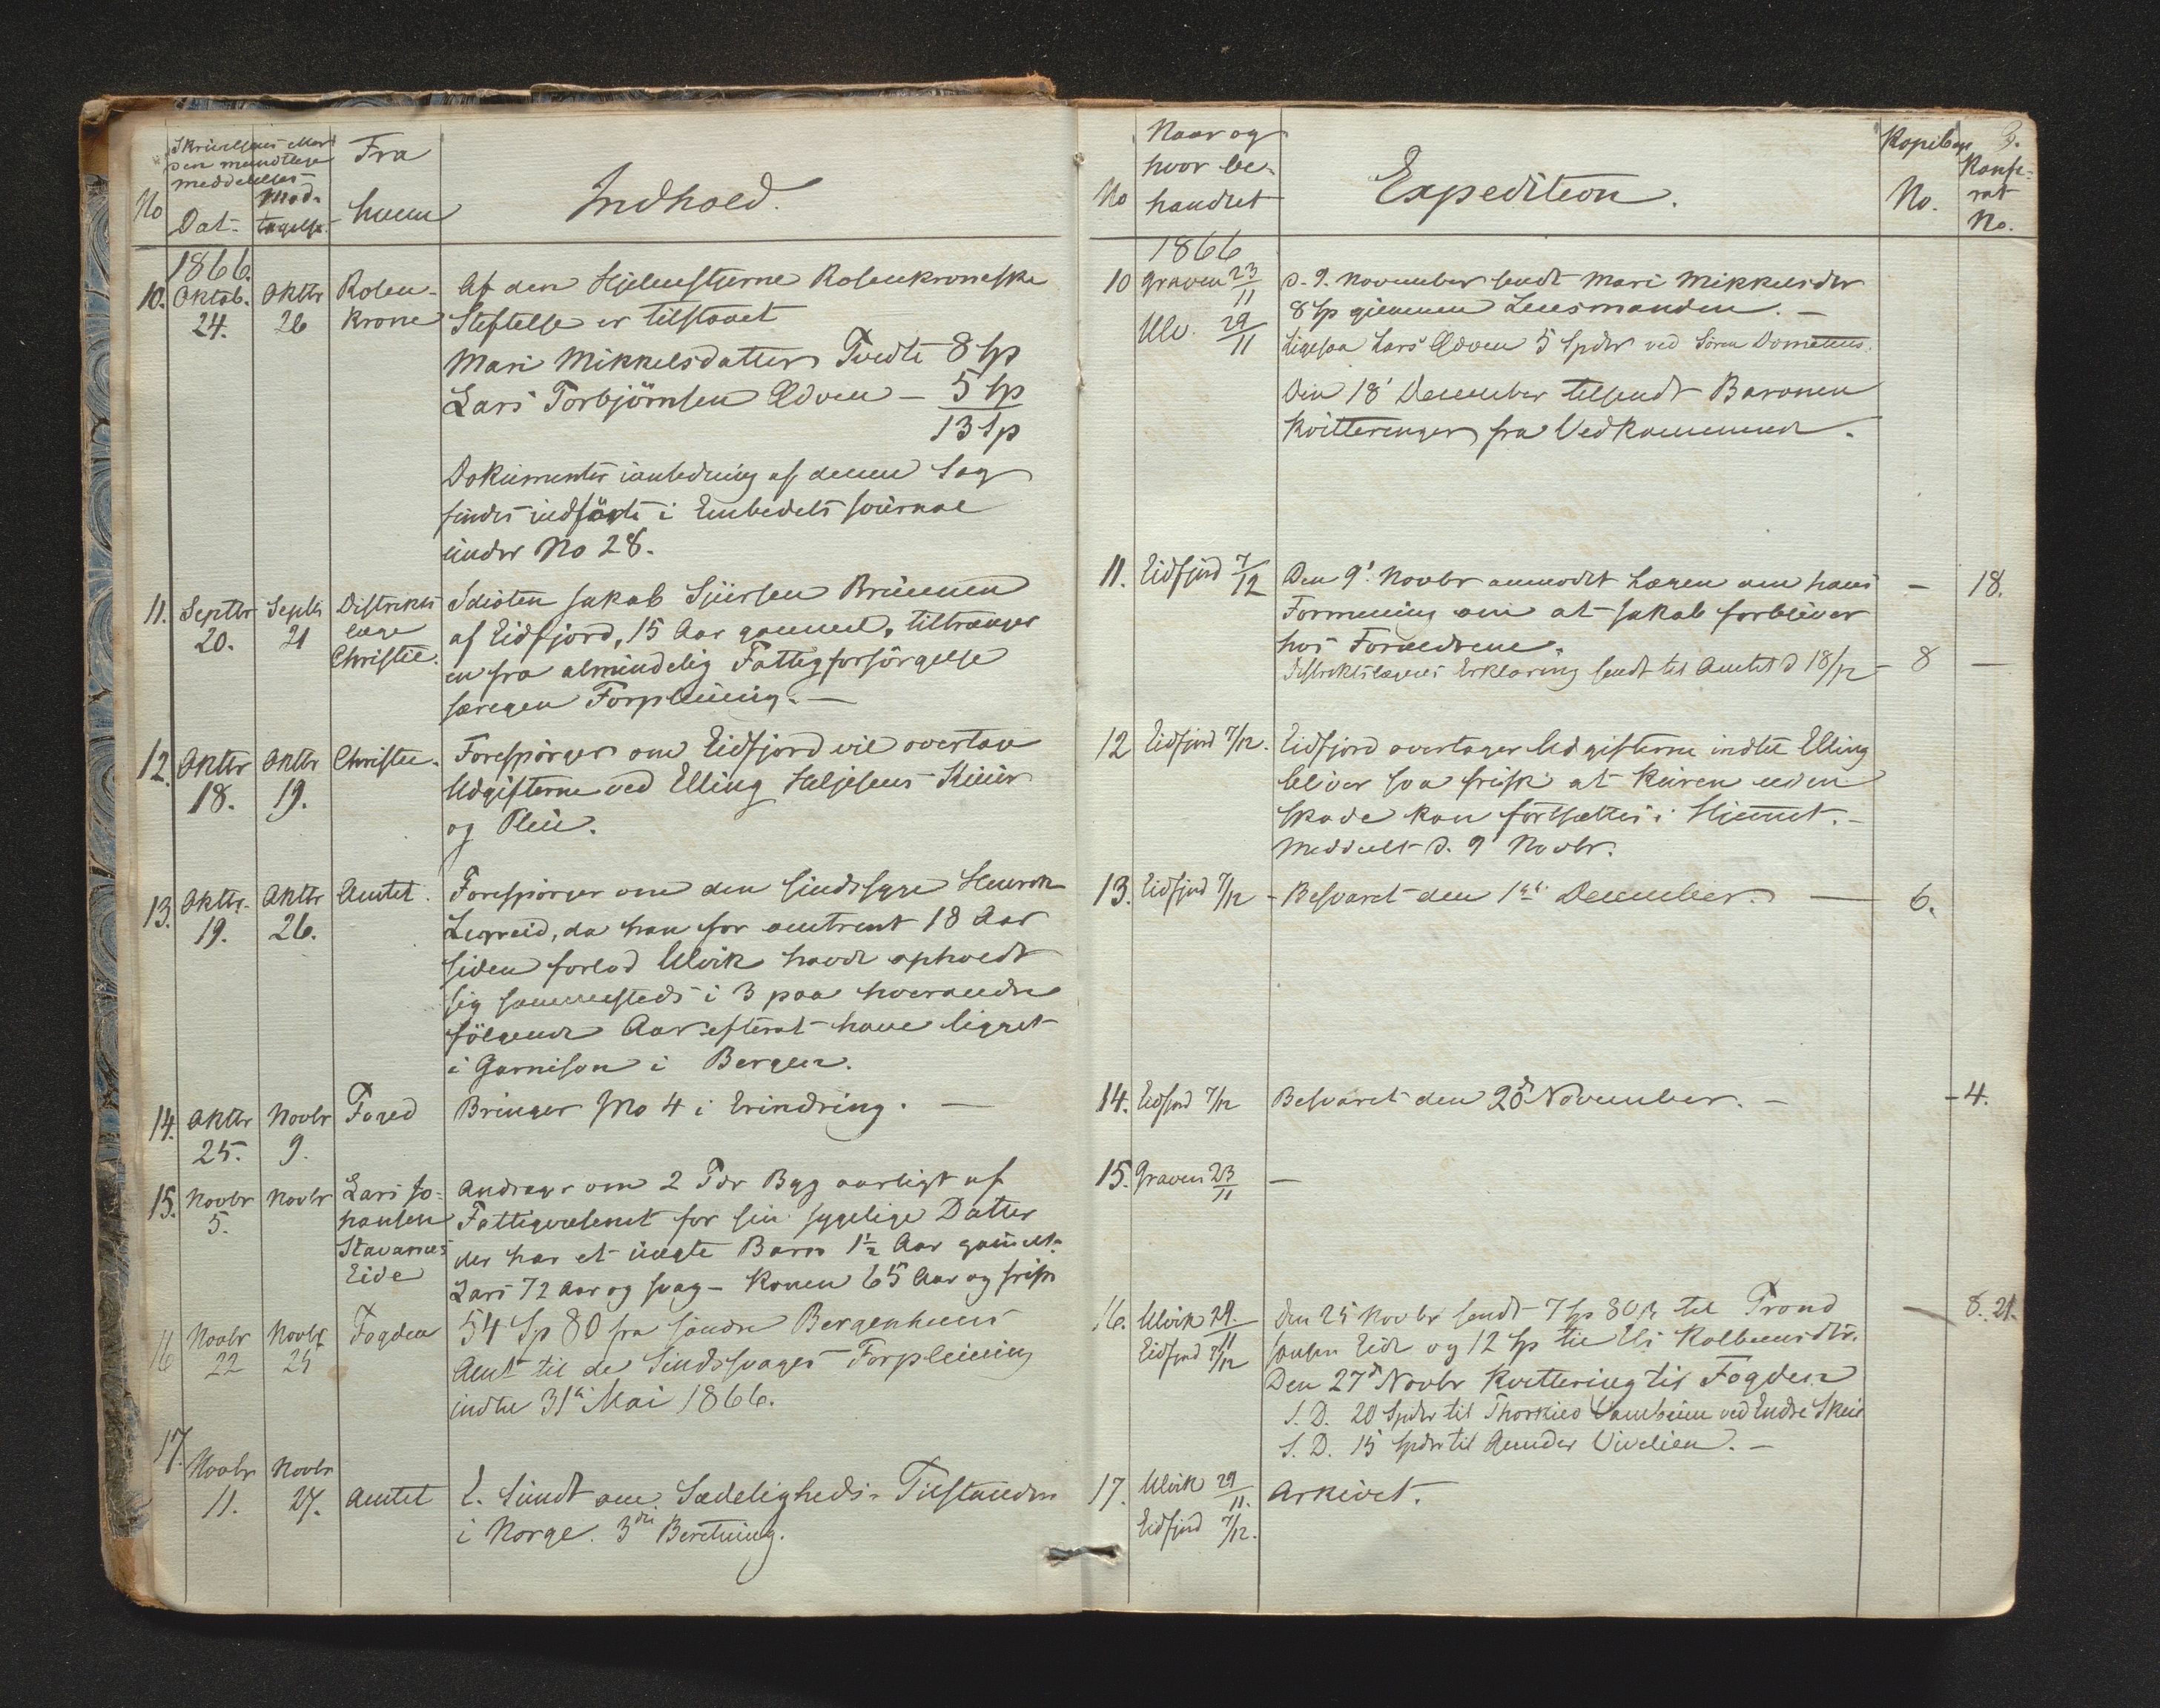 Skrivelsens eller
den mundtlige
meddelelses
No
Dat.
Mod-
tagelse.
Fra
hvem
Indhold.
1866.
10.
Oktob.
24.
Oktbr
26
Rosen-
krone
Af den Hjelmstjerne Rosenkroneske
Steftelse er tilstaaet
Mari Mikkelsdatter Tvedte 8 Sp
Lars Torbjörnsen Odven - 5 Sp
13 Sp
Dokumenter i anledning af denne Sag
findes indförte i Embedets Journal
under No 28.
11.
Septbr
20.
Septb
21
Distrikts
læge
Christie.
Idioten Jakob Sjursen
af Eidfjord, 15 Aar gammel, tiltrænger
en fra almindelig Fattigforsörgelse
særegen Forpleining. —
12.
Oktbr
18.
Oktbr
19.
Christie.
Forespörger om Eidfjord vil overtage
Udgifterne ved Elling Heljesens Kuur
og Pleie.
13.
Oktbr.
19.
Oktbr
26.
Amtet.
Forespörger om den sindssyge Henrik
Legreid, da han for omtrent 18 Aar
siden forlod Ulvik havde opholdt
sig sammesteds i 3 paa hverandre
fölgende Aar efterat have ligget
i Garnison i Bergen.
14.
Oktbr
25.
Novbr
9.
Foged
Bringer No 4 i Erindring. —
15.
Novbr
5.
Novbr
Lars Jo-
hansen
Stavanes
Eide
Andrager om 2 Tdr Byg aarligt af
Fattigvæsenet for sin sygelige Datter
der har et uægte Barn 1½ Aar gammelt.
Lars 72 Aar og svag - Konen 65 Aar og frisk
16
Novbr
22
Novbr
25
Fogden
54 Sp 80 fra söndre Bergenhuus
Amt til de Sindssvages Forpleining
indtil 31te Mai 1866.
17.
Novbr
11.
Novbr
27.
Amtet
E. Sundt om Sædeligheds-Tilstanden
i Norge. 3die Beretning.
No
Naar og
hvor be-
handlet
Expedition.
Kopibogs
No.
3.
Konse-
rat
No.
1866
10
Graven 23/11
Ulv. 29/11
d. 9. November sendt Mari Mikkelsdtr
8 Sp gjennem Lensmanden. —
Ligesaa Lars Odven 5 Spdlr ved Sören
Den 18' December tilsendt Baronen
Kvitteringer fra Vedkommende.
11.
Eidfjord 7/12
Den 9' Novbr anmodet Lægen om hans
Formening om at Jakob forbliver
hos Forældrene.
—
18.
Distriktslægens Erklæring sendt til Amtet d 18/12 -
8
—
12
Eidfjord 7/12.
Eidfjord overtager Udgifterne indtil Elling
bliver saa frisk at Kuren uden
Skade kan fortsættes i Hjemmet. —
Meddeelt d. 9 Novbr.
13.
Eidfjord 7/12 -
Besvaret den 1ste December. —
6.
14.
Eidfjord 7/12
Besvaret den 28d November. —
-4.
15.
Graven 23/11
—
16.
Ulvik 29/11
Eidfjord 7/12
Den 25 Novbr sendt 7 Sp 80 ß til Trond
Eide og 12 Sp til Eli Kolbensdtr.
—
8. 21.
Den 27d Novbr Kvittering til Fogden
S. D. 20 Spdlr til Thorkild ved Endre Skeie
S. D. 15 Spdlr til Amder Vivelien. —
17.
Ulvik 29/11.
Eidfjord 7/12.
Arkivet.